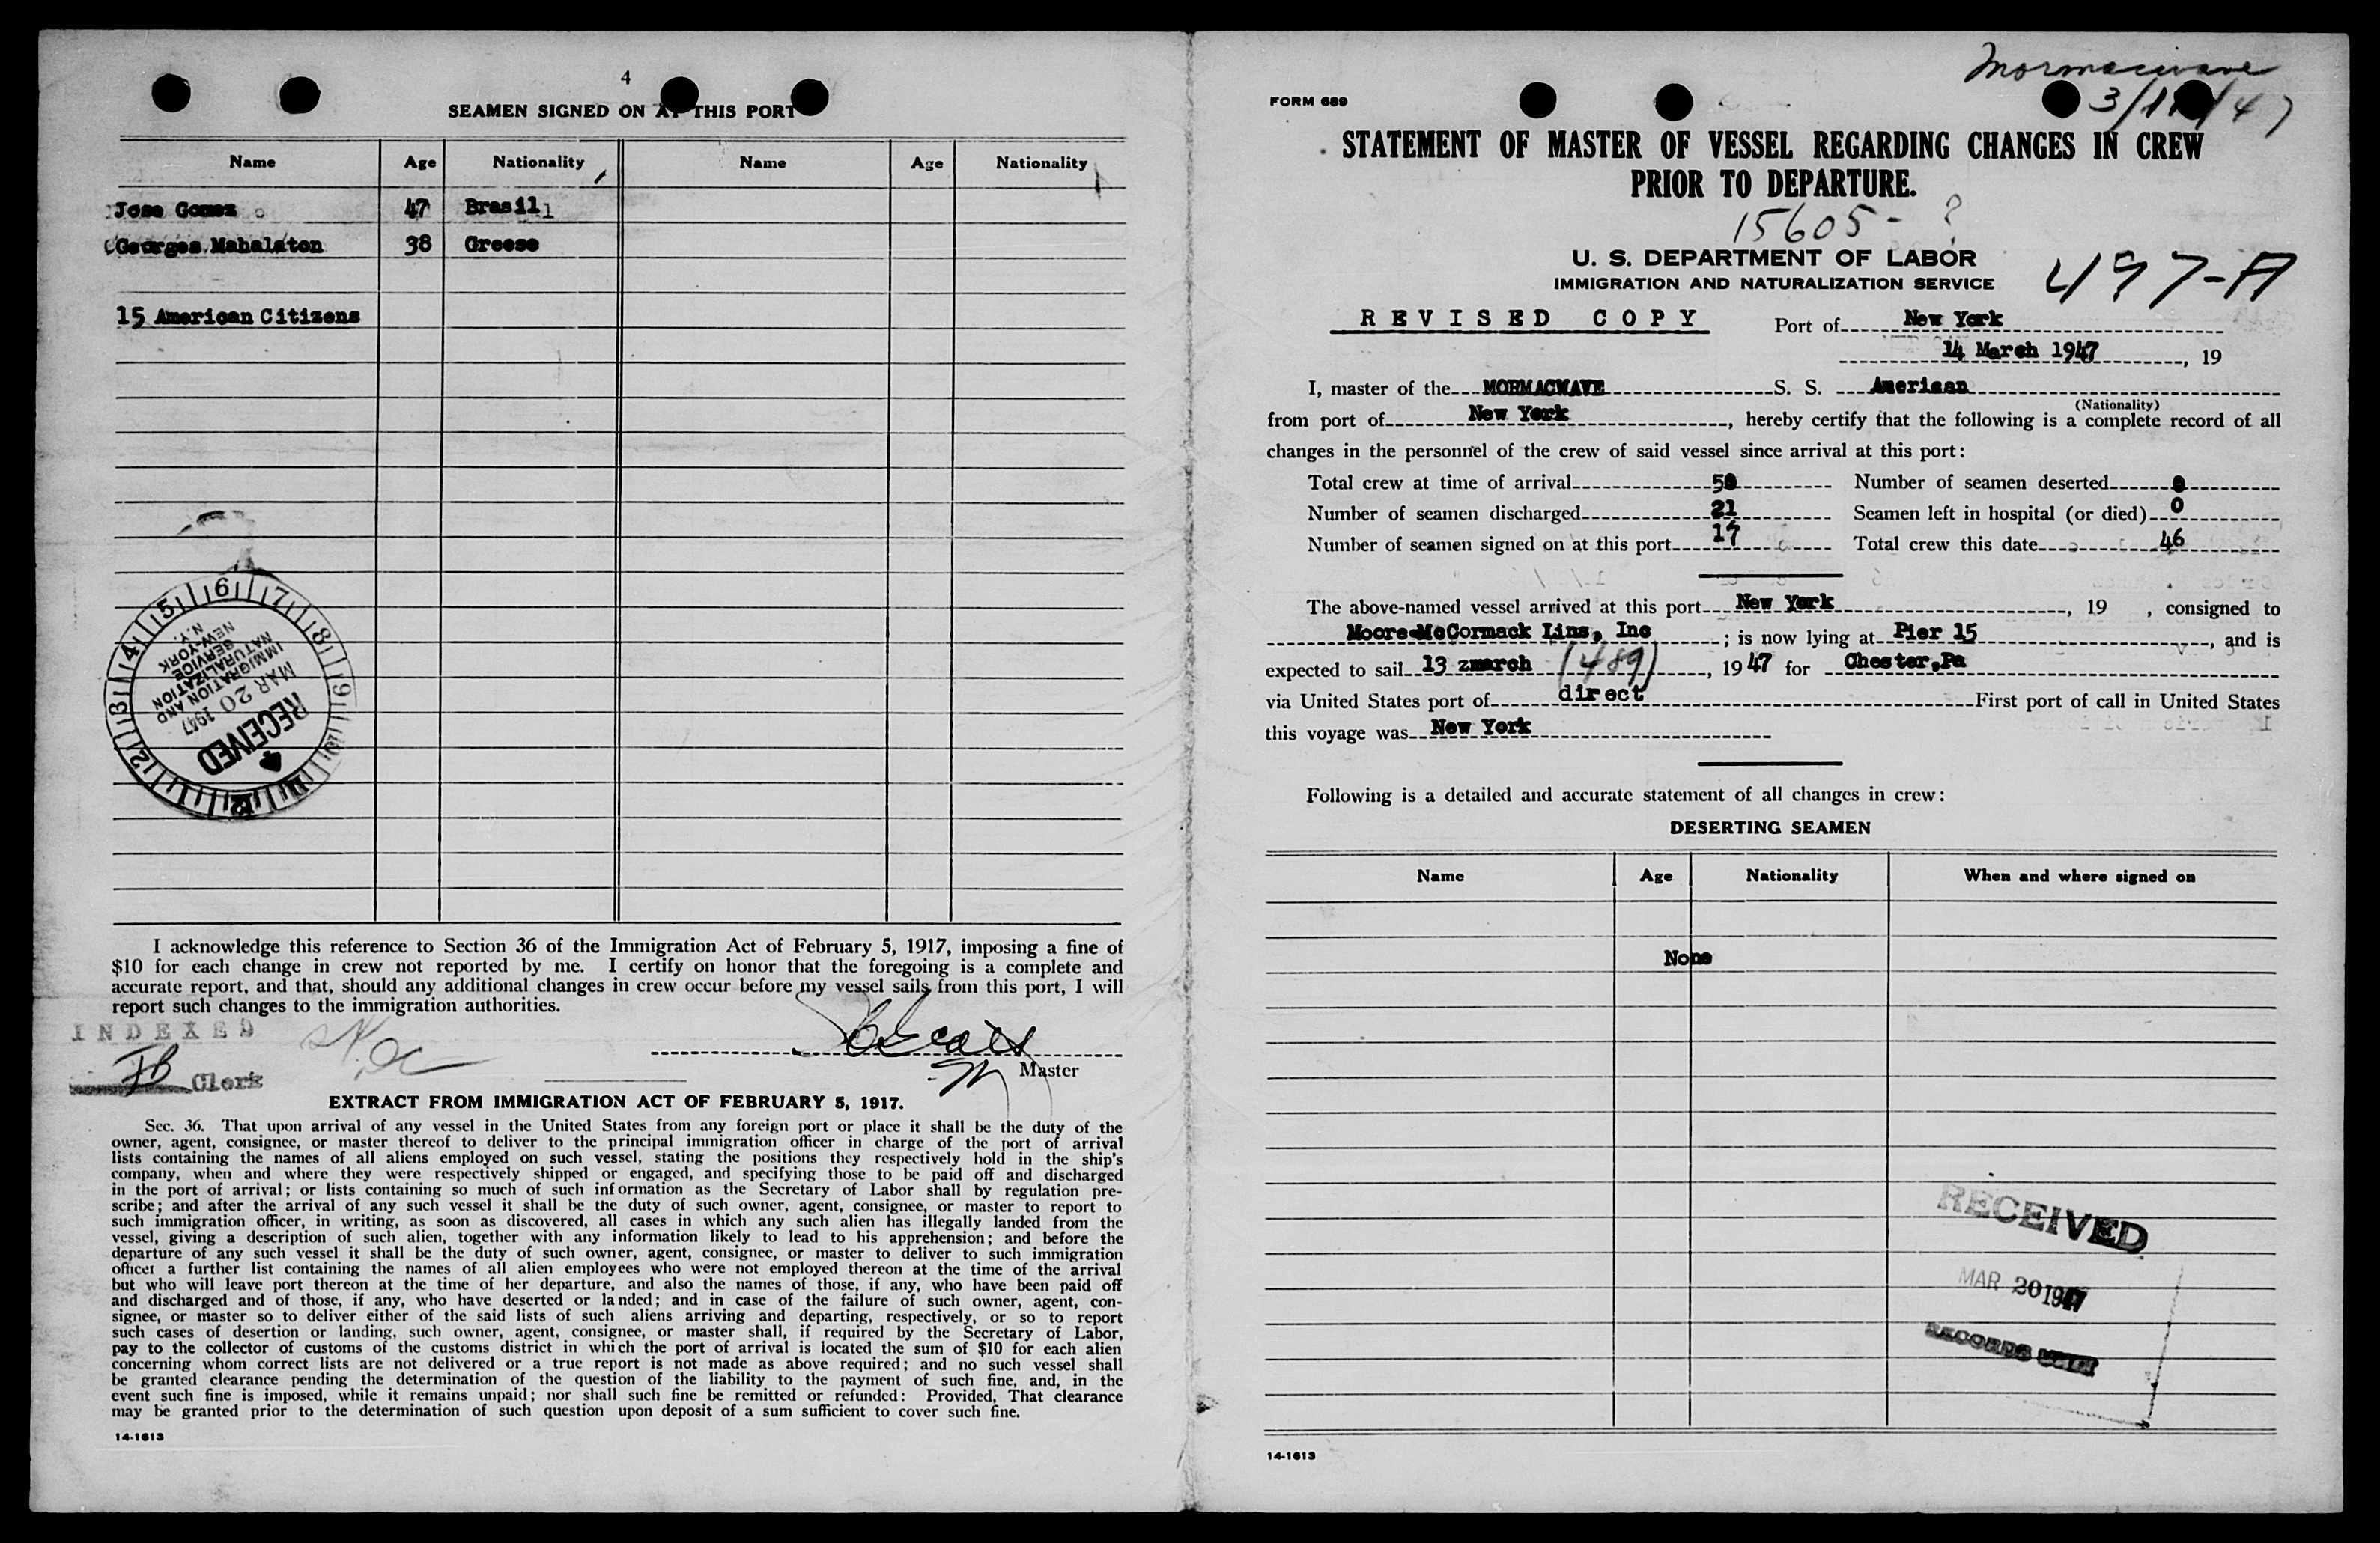 4
SEAMEN SIGNED ON AT THIS PORT
Name Age Nationality Name Age Nationality
Jose Gomez 47 Brasil
Georges Mahalaton 38 Greese
15 American Citizens
RECEIVED
MAR 20 1947
IMMIGRATION AND
NATURALIZATION
SERVICE
NEW-YORK
N.Y.
I acknowledge this reference to Section 36 of the Immigration Act of February 5, 1917, imposing a fine of
$10 for each change in crew not reported by me. I certify on honor that the foregoing is a complete and
accurate report, and that, should any additional changes in crew occur before my vessel sails from this port, I will
report such changes to the immigration authorities.
INDEXED
Clerk
Master
EXTRACT FROM IMMIGRATION ACT OF FEBRUARY 5, 1917.
Sec. 36. That upon arrival of any vessel in the United States from any foreign port or place it shall be the duty of the
owner, agent, consignee, or master thereof to deliver to the principal immigration officer in charge of the port of arrival
lists containing the names of all aliens employed on such vessel, stating the positions they respectively hold in the ship's
company, when and where they were respectively shipped or engaged, and specifying those to be paid off and discharged
in the port of arrival; or lists containing so much of such information as the Secretary of Labor shall by regulation pre-
scribe; and after the arrival of any such vessel it shall be the duty of such owner, agent, consignee, or master to report to
such immigration officer, in writing, as soon as discovered, all cases in which any such alien has illegally landed from the
vessel, giving a description of such alien, together with any information likely to lead to his apprehension; and before the
departure of any such vessel it shall be the duty of such owner, agent, consignee, or master to deliver to such immigration
officer a further list containing the names of all alien employees who were not employed thereon at the time of the arrival
but who will leave port thereon at the time of her departure, and also the names of those, if any, who have been paid off
and discharged and of those, if any, who have deserted or landed; and in case of the failure of such owner, agent, con-
signee, or master so to deliver either of the said lists of such aliens arriving and departing, respectively, or so to report
such cases of desertion or landing, such owner, agent, consignee, or master shall, if required by the Secretary of Labor,
pay to the collector of customs of the customs district in which the port of arrival is located the sum of $10 for each alien
concerning whom correct lists are not delivered or a true report is not made as above required; and no such vessel shall
be granted clearance pending the determination of the question of the liability to the payment of such fine, and, in the
event such fine is imposed, while it remains unpaid; nor shall such fine be remitted or refunded: Provided, That clearance
may be granted prior to the determination of such question upon deposit of a sum sufficient to cover such fine.
14-1613
Mormacwave
FORM 689
STATEMENT OF MASTER OF VESSEL REGARDING CHANGES IN CREW
PRIOR TO DEPARTURE.
15605- ?
U. S. DEPARTMENT OF LABOR
IMMIGRATION AND NATURALIZATION SERVICE
497-A
REVISED COPY Port of New York
14 March 1947, 19
I, master of the MORMACWAVE S. S. American
(Nationality)
from port of New York, hereby certify that the following is a complete record of all
changes in the personnel of the crew of said vessel since arrival at this port:
Total crew at time of arrival 50 Number of seamen deserted 0
Number of seamen discharged 21 Seamen left in hospital (or died) 0
Number of seamen signed on at this port 17 Total crew this date 46
The above-named vessel arrived at this port New York, 19 , consigned to
Moore-McCormack Lins, Inc; is now lying at Pier 15, and is
expected to sail 13 zmarch (489), 19 47 for Chester,Pa
via United States port of direct First port of call in United States
this voyage was New York
Following is a detailed and accurate statement of all changes in crew:
DESERTING SEAMEN
Name Age Nationality When and where signed on
None
RECEIVED
MAR 20 1947
RECORDS UNIT
14-1613